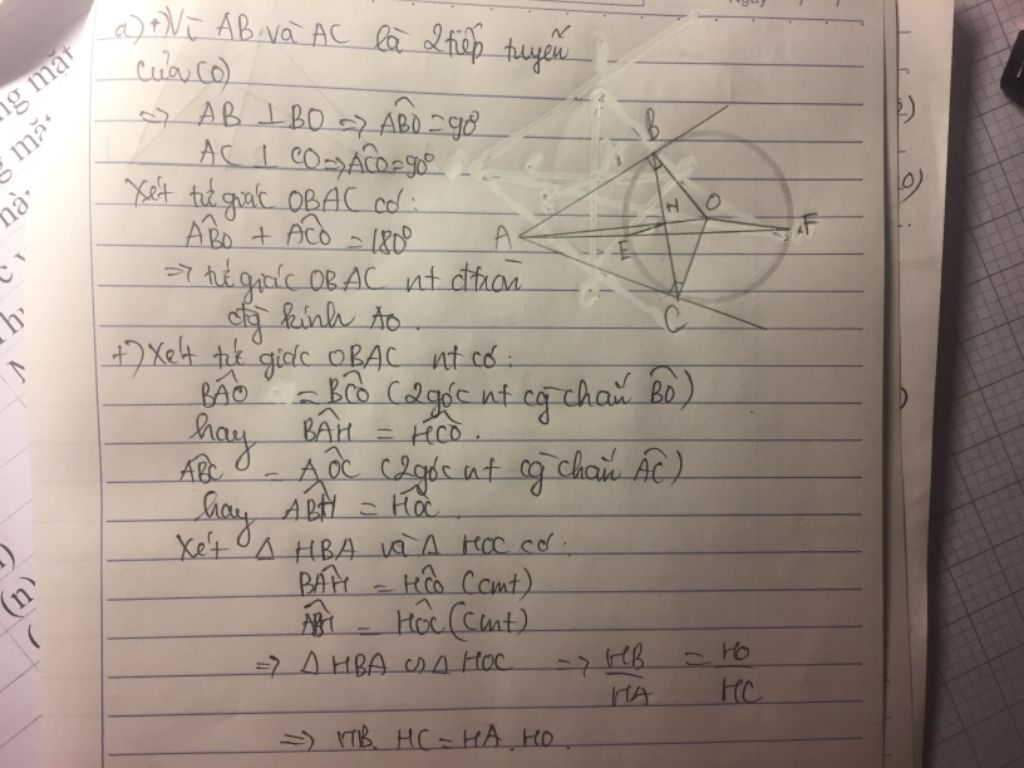 a) +) Vì AB và AC là 2 tiếp tuyến
của (O)
=> AB ⊥ BO => ABO = 90°
AC ⊥ CO => ACO = 90°
Xét tứ giác OBAC có:
ABO + ACO = 180°
=> tứ giác OBAC nt đtròn
đg kính AO.
+) Xét tứ giác OBAC nt có:
BAO = BCO (2 góc nt cg chắn BO)
hay BAH = HCO.
ABC = AOC (2 góc nt cg chắn AC)
hay ABH = HOC.
Xét Δ HBA và Δ HOC có:
BAH = HCO (cmt)
ABH = HOC (cmt)
=> Δ HBA ∽ Δ HOC => HB/HA = HO/HC
=> HB. HC = HA. HO.
B
O
H
A
E
F
C